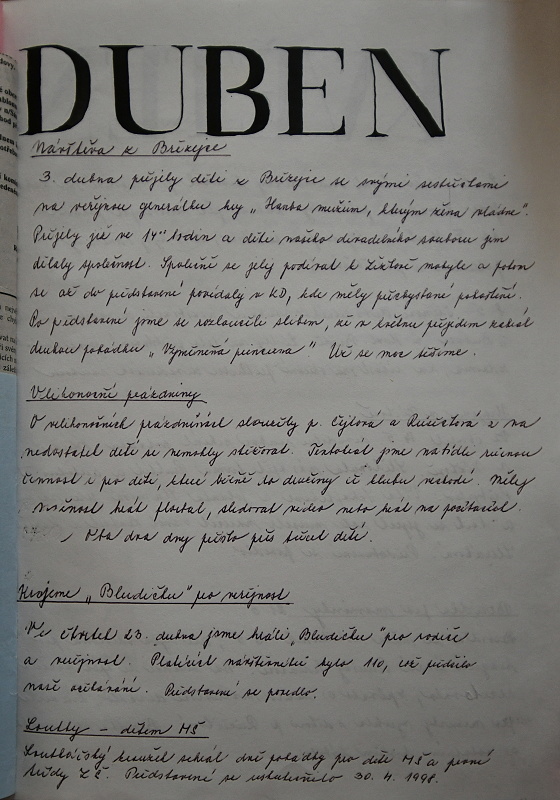 DUBEN
Návštěva z Brízejce
3. dubna přijely děti z Brízejce se svými sestřičkami
na veřejnou generálku hry „Hanba mužům, kterým žena vládne“.
Přijely již ve 14ºº hodin a děti našeho divadelního souboru jim
dělaly společnost. Společně se jely podívat k Žižkově mohyle a potom
se až do představení povídaly v KD, kde měly přichystané pohoštění.
Po představení jsme se rozloučili slibem, že v květnu přijedem zahrát
druhou pohádku „Vyměněná princezna“! Už se moc těšíme.
Velikonoční prázdniny
O velikonočních prázdninách sloužily p. a a na
nedostatek dětí si nemohly stěžovat. Tentokrát jsme nabídli
činnost i pro děti, které běžně do družiny či klubu nechodí. Měly
možnost hrát florbal, sledovat video nebo hrát na počítačích.
Oba dva dny přišlo přes třicet dětí.
Hrajeme „Bludičku“ pro veřejnost
Ve čtvrtek 23. dubna jsme hráli „Bludičku“ pro rodiče
a veřejnost. Platících návštěvníků bylo 110, což předčilo
naše očekávání. Představení se povedlo.
Loutky – dětem MŠ
Loutkářský kroužek sehrál dvě pohádky pro děti MŠ a první
třídy ZŠ. Představení se uskutečnilo 30. 4. 1998.